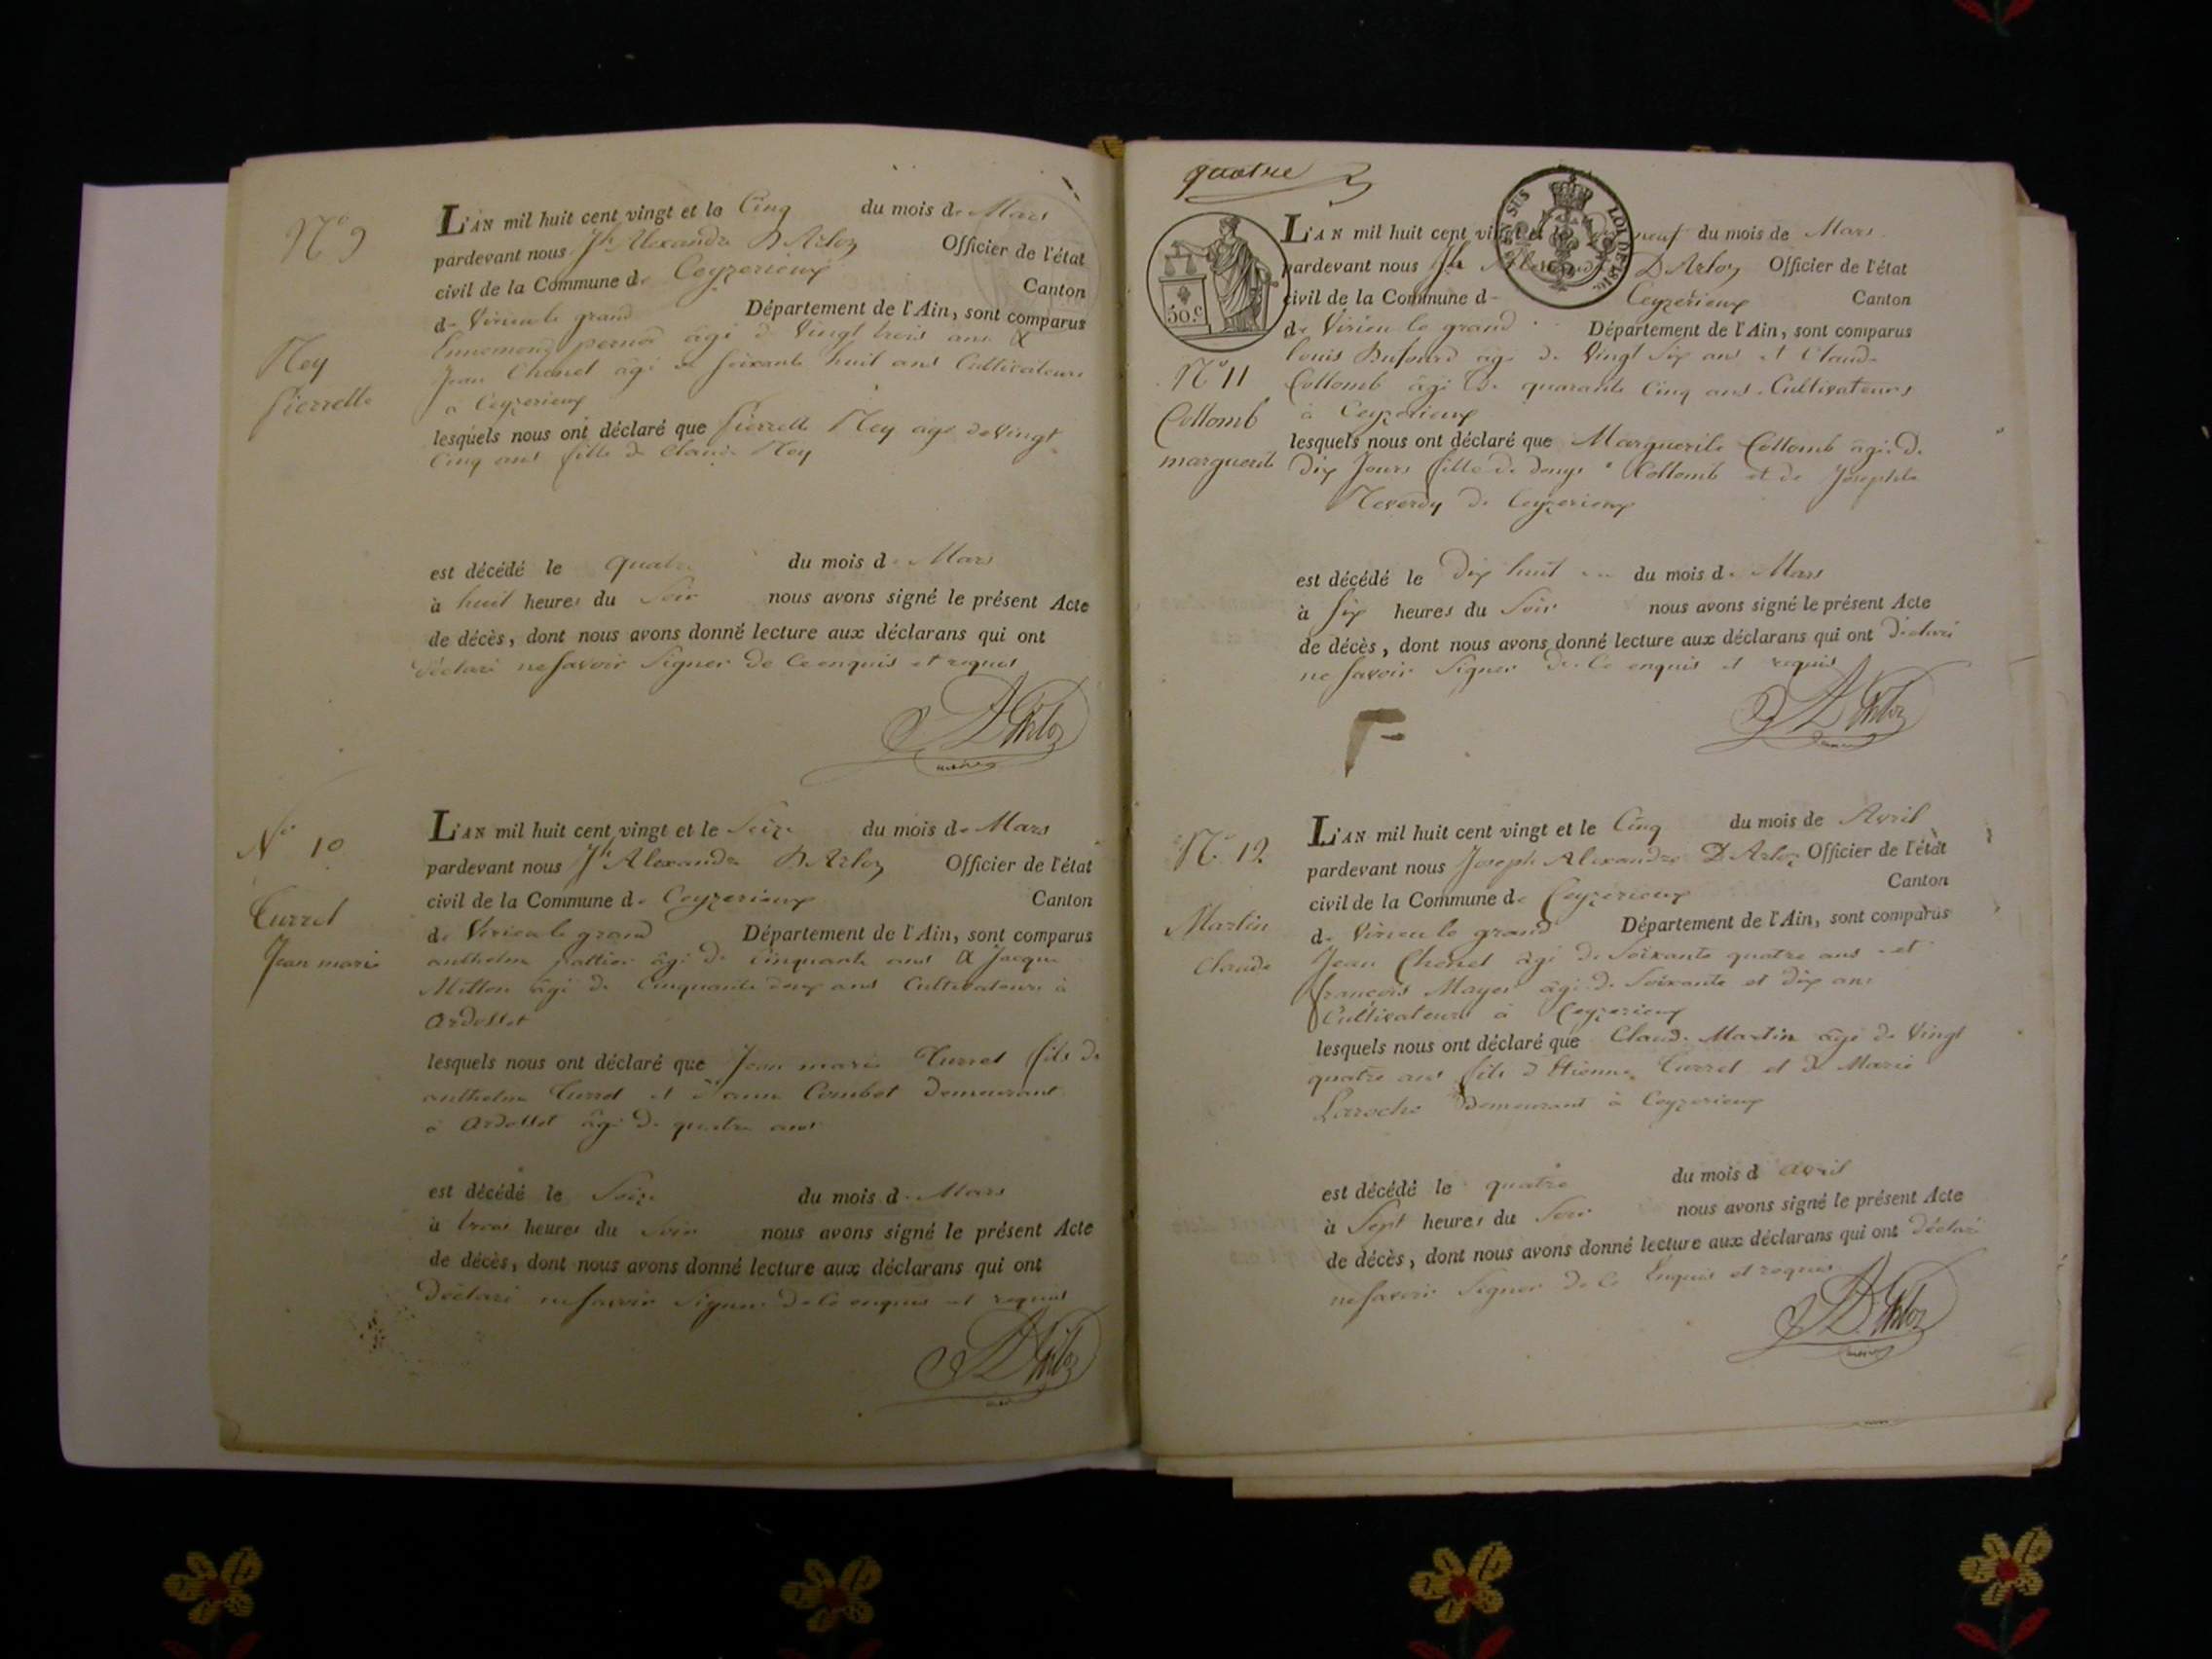 N° 9
Ney
Pierrette
L'AN mil huit cent vingt et le Cinq du mois de Mars
pardevant nous Jh Alexandre D Arloz Officier de l'état
civil de la Commune de Ceyzerieux Canton
de Virieu le grand Département de l'Ain, sont comparus
Ennemond pernod âgé de Vingt trois ans &
Jean Chenet âgé de soixante huit ans Cultivateurs
a Ceyzerieux
lesquels nous ont déclaré que Pierrette Ney age de Vingt
Cinq ans fille de Claude Ney
est décédé le quatre du mois de Mars
à huit heures du Soir nous avons signé le présent Acte
de décès, dont nous avons donné lecture aux déclarans qui ont
déclaré ne savoir Signer de Ce enquis et requis
D Arloz
N° 10
Turrel
Jean marie
L'AN mil huit cent vingt et le Seize du mois de Mars
pardevant nous Jh Alexandre D Arloz Officier de l'état
civil de la Commune de Ceyzerieux Canton
de Virieu le grand Département de l'Ain, sont comparus
anthelme âgé de Cinquante ans & Jacque
Mitton âgé de Cinquante deux ans Cultivateurs à
Ardosset
lesquels nous ont déclaré que Jean marie Turrel fils de
anthelme Turrel et d'anne Combet Demeurant
à Ardosset âgé de quatre ans
est décédé le Seize du mois de Mars
à trois heures du Soir nous avons signé le présent Acte
de décès, dont nous avons donné lecture aux déclarans qui ont
Déclaré ne savoir Signer de Ce enquis et requis
D Arloz
quatre
50.c
SUS LOI DE 1816.
N° 11
Collomb
marguerite
L'AN mil huit cent vingt et le neuf du mois de Mars
pardevant nous Jh Alexandre D Arloz Officier de l'état
civil de la Commune d Ceyzerieux Canton
de Virieu le grand Département de l'Ain, sont comparus
louis Dufourd âgé de Vingt Six ans et Claude
Collomb âgé de quarante Cinq ans Cultivateurs
à Ceyzerieux
lesquels nous ont déclaré que Marguerite Collomb âgée de
dix Jours fille de denys Collomb et de Josephte
Neverdy de Ceyzerieux
est décédé le Dix huit du mois de Mars
à Six heures du Soir nous avons signé le présent Acte
de décès, dont nous avons donné lecture aux déclarans qui ont Déclaré
ne savoir Signer de Ce enquis et requis
D Arloz
N° 12
Martin
Claude
L'AN mil huit cent vingt et le Cinq du mois de Avril
pardevant nous Joseph Alexandre D Arloz Officier de l'état
civil de la Commune de Ceyzerieux Canton
de Virieu le grand Département de l'Ain, sont comparus
Jean Chenet âgé de Soixante quatre ans et
françois Mayer âgé de Soixante et dix ans
Cultivateurs à Ceyzerieux
lesquels nous ont déclaré que Claude Martin âgé de Vingt
quatre ans fils d'Etienne Turrel et de Marie
Laroche Demeurant à Ceyzerieux
est décédé le quatre du mois d avril
à Sept heures du Soir nous avons signé le présent Acte
de décès, dont nous avons donné lecture aux déclarans qui ont déclaré
ne savoir Signer de Ce Enquis et requis
D Arloz